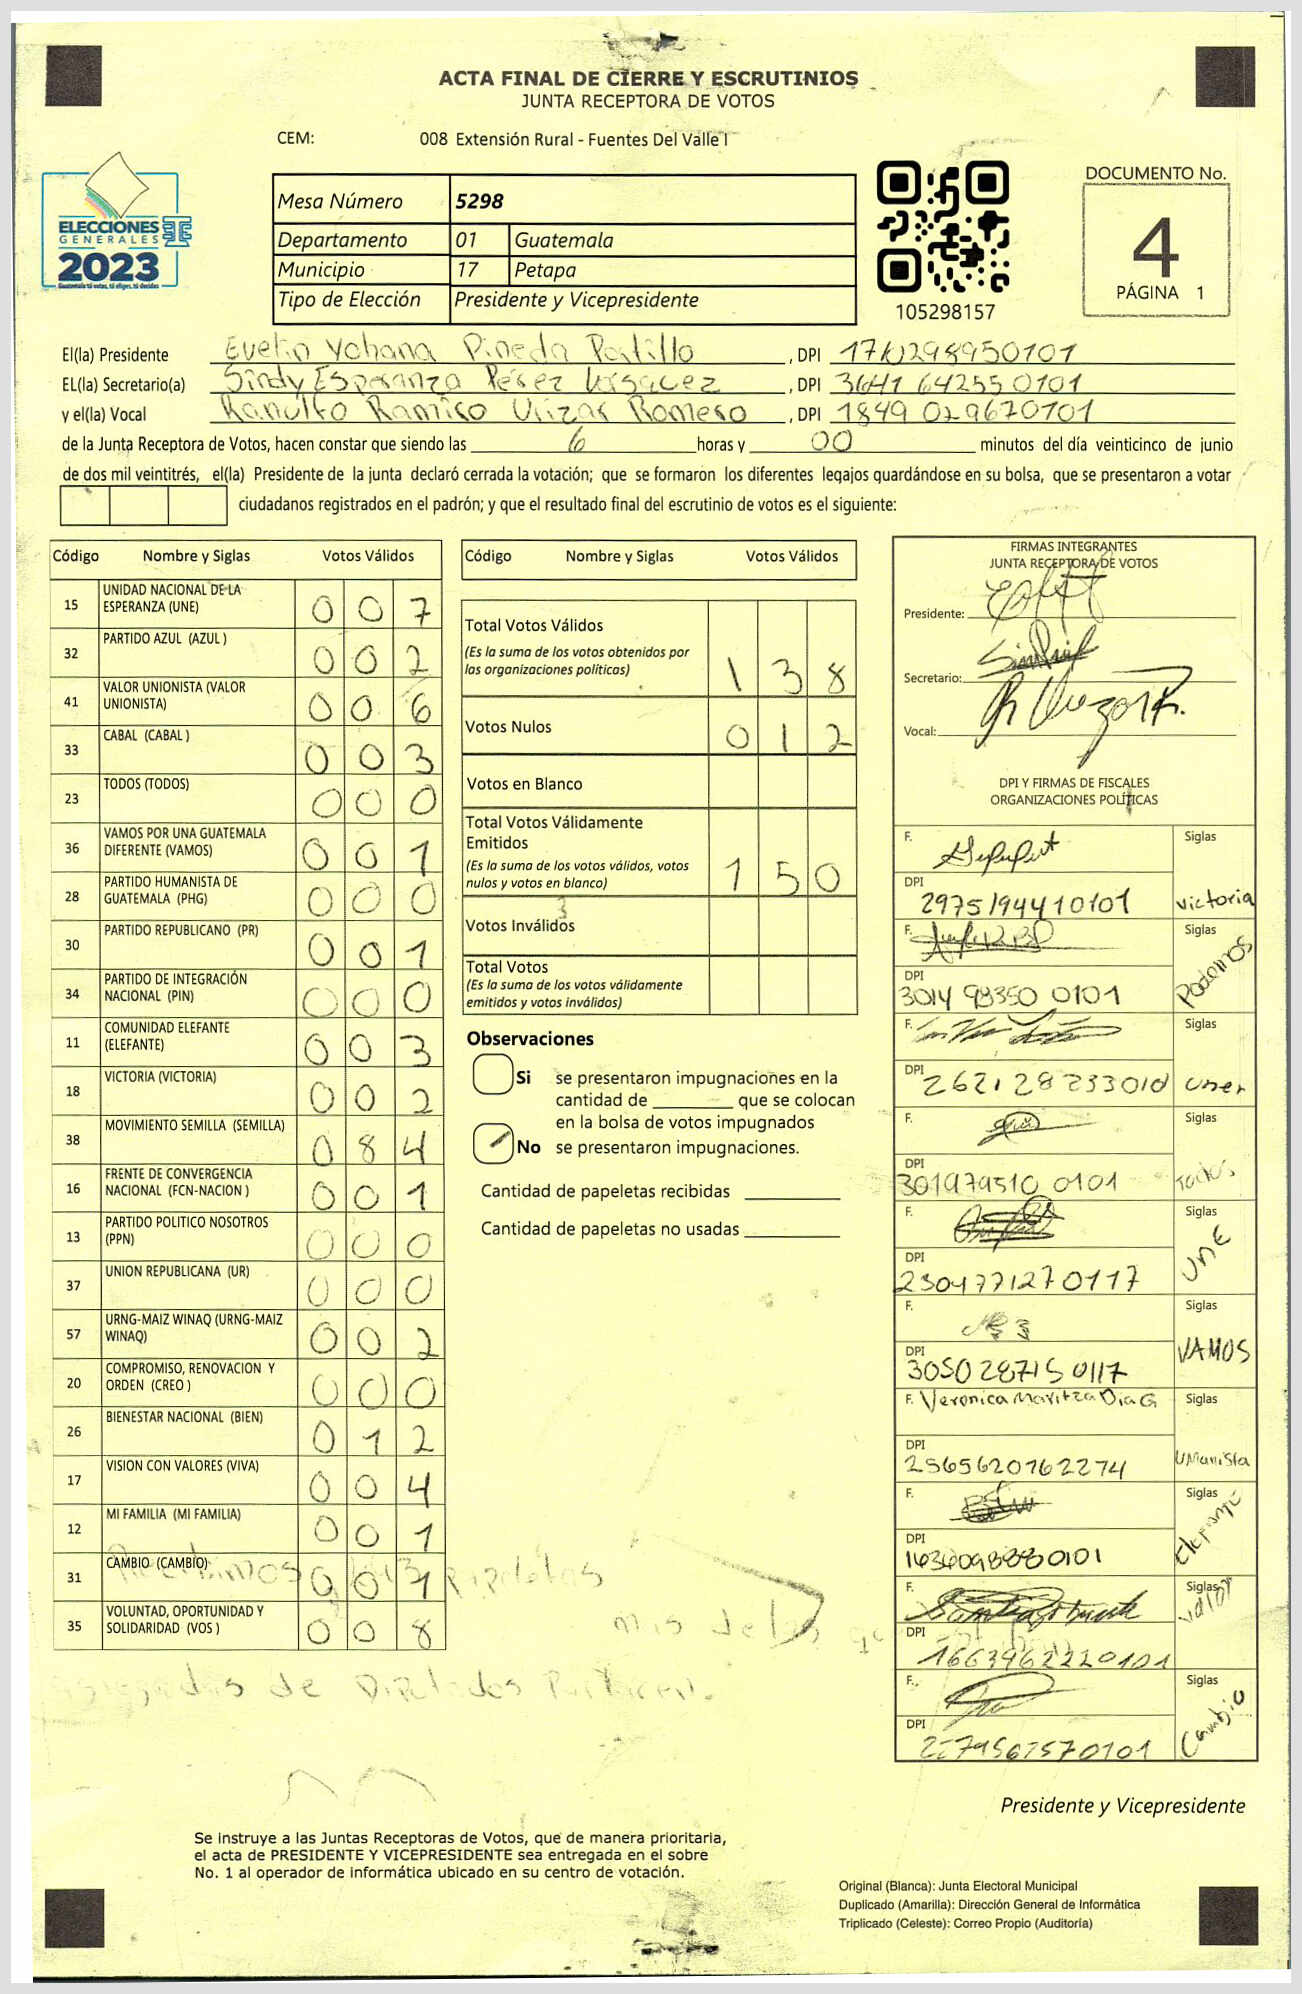 ACTA FINAL DE CIERRE Y ESCRUTINIOS
JUNTA RECEPTORA DE VOTOS
CEM: 008 Extensión Rural - Fuentes Del Valle I
ELECCIONES
GENERALES
2023
Guatemala tú votas, tú eliges, tú decides
Mesa Número 5298
Departamento 01 Guatemala
Municipio 17 Petapa
Tipo de Elección Presidente y Vicepresidente
105298157
DOCUMENTO No.
4
PÁGINA 1
El(la) Presidente Evelin Yohana Pineda Portillo, DPI
EL(la) Secretario(a) Sindy Esperanza Pérez, DPI 3641 64255 0101
y el(la) Vocal Ranulfo Ramiro Urizar Romero, DPI 1849 029670101
de la Junta Receptora de Votos, hacen constar que siendo las 6 horas y 00 minutos del día veinticinco de junio
de dos mil veintitrés, el(la) Presidente de la junta declaró cerrada la votación; que se formaron los diferentes legajos guardándose en su bolsa, que se presentaron a votar
ciudadanos registrados en el padrón; y que el resultado final del escrutinio de votos es el siguiente:
Código Nombre y Siglas Votos Válidos
15 UNIDAD NACIONAL DE LA ESPERANZA (UNE) 0 0 7
32 PARTIDO AZUL (AZUL ) 0 0 2
41 VALOR UNIONISTA (VALOR UNIONISTA) 0 0 6
33 CABAL (CABAL ) 0 0 3
23 TODOS (TODOS) 0 0 0
36 VAMOS POR UNA GUATEMALA DIFERENTE (VAMOS) 0 0 1
28 PARTIDO HUMANISTA DE GUATEMALA (PHG) 0 0 0
30 PARTIDO REPUBLICANO (PR) 0 0 1
34 PARTIDO DE INTEGRACIÓN NACIONAL (PIN) 0 0 0
11 COMUNIDAD ELEFANTE (ELEFANTE) 0 0 3
18 VICTORIA (VICTORIA) 0 0 2
38 MOVIMIENTO SEMILLA (SEMILLA) 0 8 4
16 FRENTE DE CONVERGENCIA NACIONAL (FCN-NACION ) 0 0 1
13 PARTIDO POLITICO NOSOTROS (PPN) 0 0 0
37 UNION REPUBLICANA (UR) 0 0 0
57 URNG-MAIZ WINAQ (URNG-MAIZ WINAQ) 0 0 2
20 COMPROMISO, RENOVACION Y ORDEN (CREO ) 0 0 0
26 BIENESTAR NACIONAL (BIEN) 0 1 2
17 VISION CON VALORES (VIVA) 0 0 4
12 MI FAMILIA (MI FAMILIA) 0 0 1
31 CAMBIO (CAMBIO) 0 0 1
35 VOLUNTAD, OPORTUNIDAD Y SOLIDARIDAD (VOS ) 0 0 8
papeletas
de Diputados
Código Nombre y Siglas Votos Válidos
Total Votos Válidos
(Es la suma de los votos obtenidos por
las organizaciones políticas) 1 3 8
Votos Nulos 0 1 2
Votos en Blanco
Total Votos Válidamente
Emitidos
(Es la suma de los votos válidos, votos
nulos y votos en blanco) 1 5 0
Votos Inválidos
Total Votos
(Es la suma de los votos válidamente
emitidos y votos inválidos)
Observaciones
Si se presentaron impugnaciones en la
cantidad de ________ que se colocan
en la bolsa de votos impugnados
No se presentaron impugnaciones.
Cantidad de papeletas recibidas
Cantidad de papeletas no usadas
FIRMAS INTEGRANTES
JUNTA RECEPTORA DE VOTOS
Presidente:
Secretario:
Vocal:
DPI Y FIRMAS DE FISCALES
ORGANIZACIONES POLÍTICAS
F. Siglas
DPI 2975194410101 victoria
F. Siglas
DPI 3014 98350 0101 Podemos
F. Siglas
DPI
F. Siglas
DPI 301979510 0101 Todos
F. Siglas
DPI 2304771270117 UNE
F. Siglas
DPI 3050 28715 0117 VAMOS
F. Veronica Maritza Dia G Siglas
DPI 2565620762274 UManista
F. Siglas
DPI Elefante
F. Siglas
DPI 1663962220101 Valor
F. Siglas
DPI Cambio
Presidente y Vicepresidente
Se instruye a las Juntas Receptoras de Votos, que de manera prioritaria,
el acta de PRESIDENTE Y VICEPRESIDENTE sea entregada en el sobre
No. 1 al operador de informática ubicado en su centro de votación.
Original (Blanca): Junta Electoral Municipal
Duplicado (Amarilla): Dirección General de Informática
Triplicado (Celeste): Correo Propio (Auditoría)